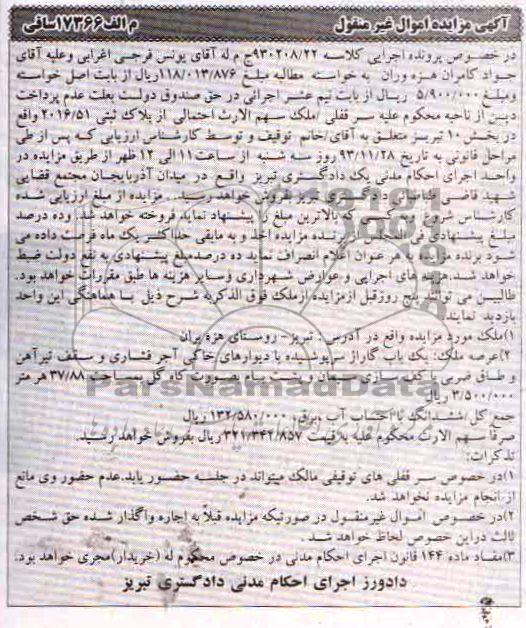 آگهی مزایده اموال غیر منقول
م الف ۱۷۳۶۶ساقی
در خصوص پرونده اجرایی کلاسه ۹۳۰۲۰۸/۲۲ج م له آقای یونس فرجی اغرابی وعلیه آقای
جواد کامران هزه وران به خواسته مطالبه مبلغ ۱۱۸/۰۱۳/۸۷۶ریال از بابت اصل خواسته
ومبلغ ۵/۹۰۰/۰۰۰ ریال از بابت نیم عشر اجرائی در حق صندوق دولت بعلت عدم پرداخت
دین از ناحیه محکوم علیه سر قفلی /ملک سهم الارث احتمالی از پلاک ثبتی ۲۰۱۶/۵۱ واقع
در بخش ۱۰ تبریز متعلق به آقای/خانم توقیف و توسط کارشناس ارزیابی که پس از طی
مراحل قانونی به تاریخ ۹۳/۱۱/۲۸ روز سه شنبه از ساعت۱۱ الی ۱۲ ظهر از طریق مزایده در
واحد اجرای احکام مدنی یک دادگستری تبریز واقع در میدان آذربایجان مجتمع قضایی
شهید قاضی طباطبایی دادگستری تبریز بفروش خواهد رسید. مزایده از مبلغ ارزیابی شده
کارشناس شروع و کسی که بالاترین مبلغ را پیشنهاد نماید فروخته خواهد شد. وده درصد
مبلغ پیشنهادی فی المجلس از برنده مزایده اخذ و به مابقی حداکثر یک ماه فرصت داده می
شود برنده مزایده به هر عنوان اعلام انصراف نماید ده درصدمبلغ پیشنهادی به نفع دولت ضبط
خواهد شد.هزینه های اجرایی و عوارض شهرداری وسایر هزینه ها طبق مقررات خواهد بود.
طالبین می توانند پنج روزقبل ازمزایده ازملک فوق الذکربه شرح ذیل با هماهنگی این واحد
بازدید نمایند
۱)ملک مورد مزایده واقع در آدرس. تبریز- روستای هزه بران
۲)عرصه ملک: یک باب گاراژ سرپوشیده با دیوارهای خاکی آجر فشاری و سقف تیرآهن
و طاق ضربی با کف سازی سیمان و پشت بام بصورت کاه گل بمساحت ۳۷/۸۸ هر متر
۳/۵۰۰/۰۰۰ ریال
جمع کل/ششدانگ با احتساب آب ،برق، ۱۳۲/۵۸۰/۰۰۰ ریال
صرفآ سهم الارث محکوم علیه بقیمت ۳۲۱/۳۴۲/۸۵۷ ریال بفروش خواهد رسید.
تذکرات:
۱)در خصوص سر قفلی های توقیفی مالک میتواند در جلسه حضور یابد.عدم حضور وی مانع
از انجام مزایده نخواهد شد.
۲)در خصوص اموال غیرمنقول در صورتیکه مزایده قبلاً به اجاره واگذار شده حق شخص
ثالث دراین خصوص لحاظ خواهد شد .
۳)مفاد ماده ۱۴۴ قانون اجرای احکام مدنی در خصوص محکوم له (خریدار)مجری خواهد بود.
دادورز اجرای احکام مدنی دادگستری تبریز
ParsNamadData